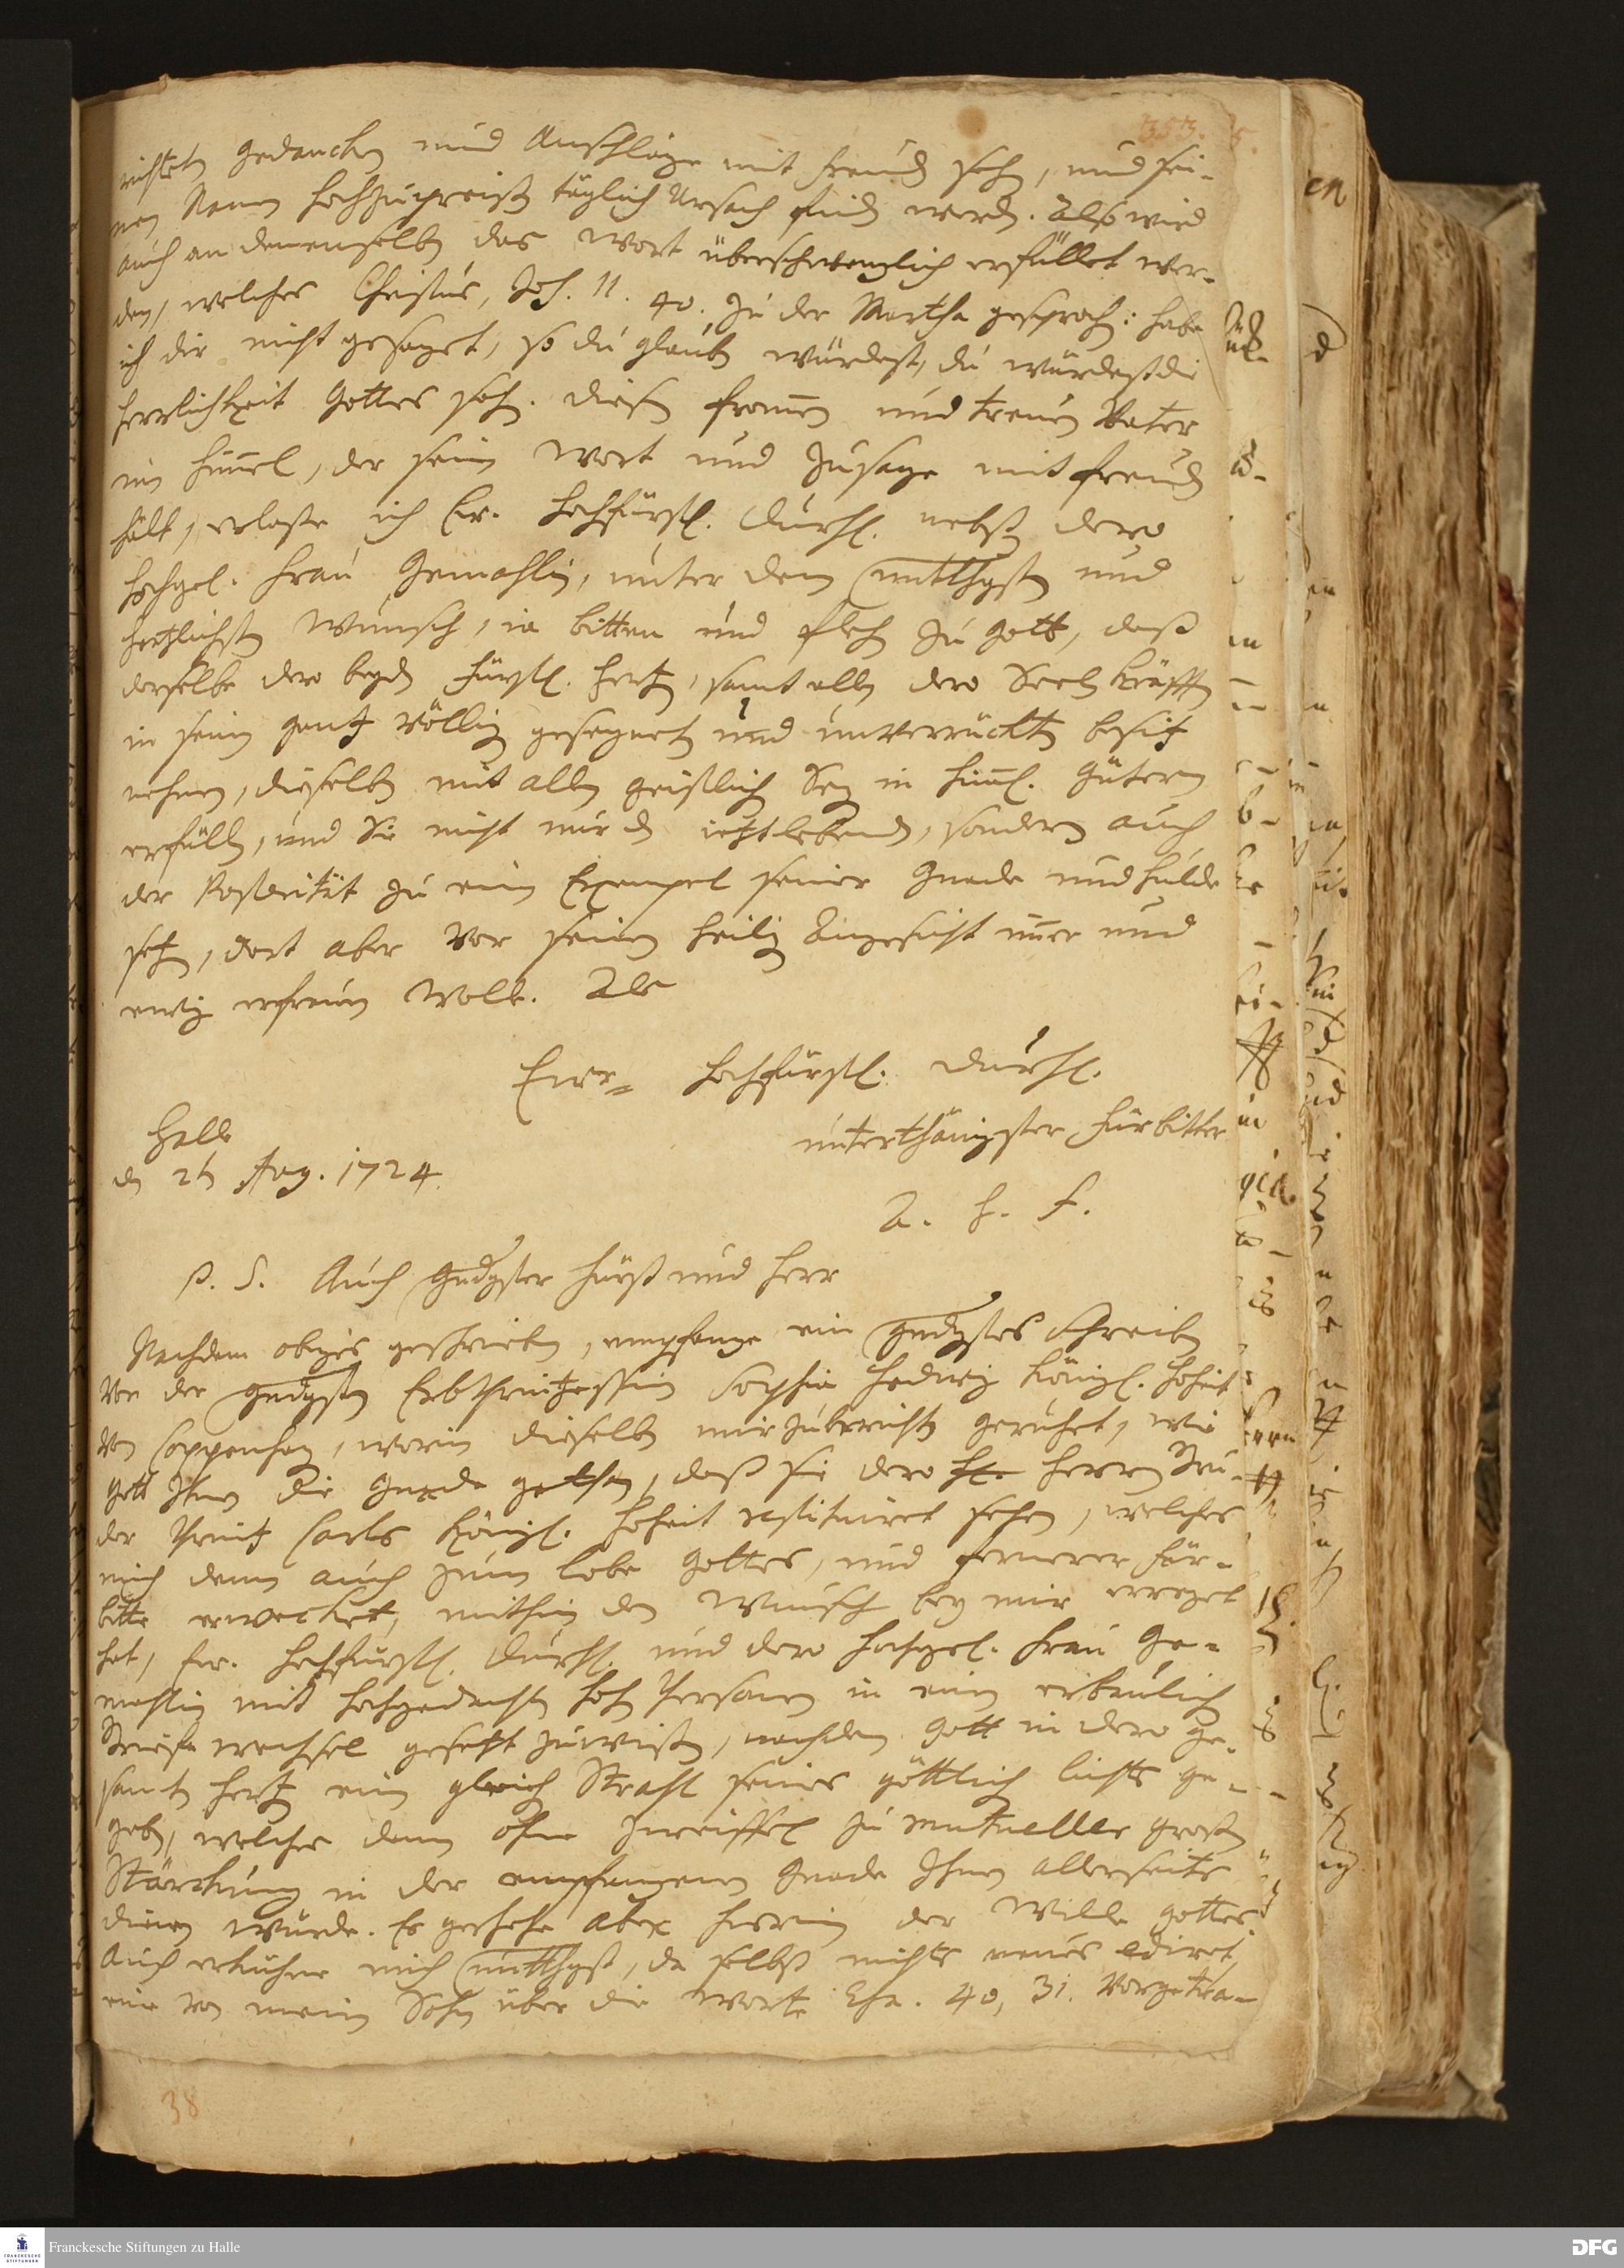 353.
richtet Gedancken und Anschläge mit Freud sehen, und sei-
nen Namen hochzupreisen täglich Ursach finden werden. Also wird
auch an demenselben das Wort überschwenglich erfüllet wer-
den, welches Christus, Joh. 11. 40. zu der Martha gesprochen: habe
ich dir nicht gesaget, so du glauben würdest, du würdest die
Herrlichkeit Gottes sehen. Diesem frommen und treuen Vater
im Himmel, der sein Wort und Zusage mit Freuden
hält, erlaße ich Ew. Hochfürstl. Durchl. nebst dero
hochgel. Frau Gemahlin, unter dem unterthgsten und
hertzlichsten Wunsch, in bitten und flehen zu Gott, daß
derselbe dero beyden Fürstl. Hertzen, samt allen dero Seelen Kräfften
in sein gantz völligen gesegneten und unverruckten besitz
nehmen, dieselben mit allem geistlichen Segen in himml. Gütern
erfüllen, und Sie nicht nur den ietztlebenden, sondern auch
der Posterität zu einem Exempel seiner Gnade und Hulde
setzen, dort aber vor seinem heiligen Angesicht immer und
ewig erfreuen wolle. Als
Ewr. Hochfürstl. Durchl.
unterthänigster Fürbitter
Halle
den 26 Aug. 1724.
A. H. F.
P. S. Auch Gndgster Fürst und Herr
Nachdem obiges geschrieben, empfange ein gndgstes Schreiben
von der gndgsten Erbprintzessin Sophia Hedwig Königl. Hoheit
von Coppenhagen, worin dieselben mir zuberichten geruhet, wie
Gott Ihnen die Gnade gethan, daß sie dero Hl. Herrn Bru-
der Printz Carls Königl. Hoheit restituiret sehen, welches
mich denn auch zum Lobe Gottes, und fernerer Für-
bitte erwecket, mithin den Wunsch bey mir erreget
hat, Ew. Hochfürstl. Durchl. und dero hochgel. Frau Ge-
mahlin mit hochgedachten hohen Personen in einen erbaulichen
Briefe wechsel gesetzt zu wissen, nachdem Gott in dero ge-
samten Hertzen einen gleichen Strahl seines göttlichen Lichts ge-
geben, welches denn ohne Zweiffel zu mutueller großen
Stärckung in der empfangenen Gnade Ihnen allerseits
dienen würde. Es geschehe aber hierin der Wille Gottes.
Auch erkühne mich unterthgst, da selbst nichts neues edirt,
eine von meinem Sohn über die Worte Esa. 40, 31. vorgetra-
38
Franckesche Stiftungen zu Halle
DFG